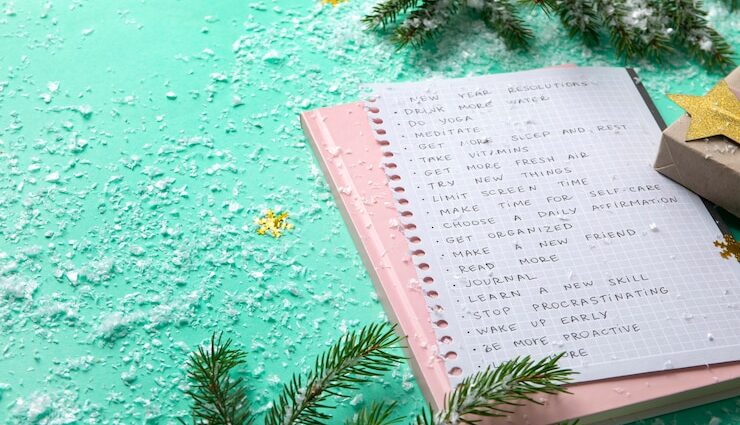 NEW YEAR RESOLUTIONS
- DRINK MORE WATER
- DO YOGA
- MEDITATE
- GET MORE SLEEP AND REST
- TAKE VITAMINS
- GET MORE FRESH AIR
- TRY NEW THINGS
- LIMIT SCREEN TIME
- MAKE TIME FOR SELF-CARE
- CHOOSE A DAILY AFFIRMATION
- GET ORGANIZED
- MAKE A NEW FRIEND
- READ MORE
- JOURNAL
- LEARN A NEW SKILL
- STOP PROCRASTINATING
- WAKE UP EARLY
- BE MORE PROACTIVE